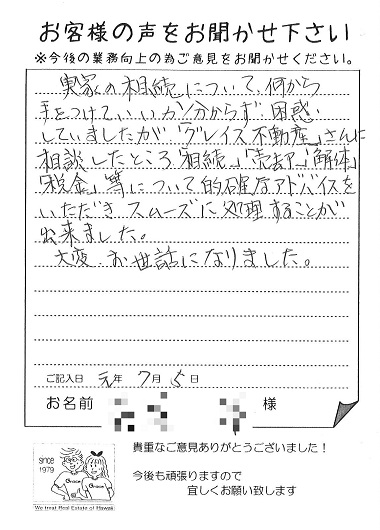 お客様の声をお聞かせ下さい
※今後の業務向上の為ご意見をお聞かせください。
実家の相続について、何から
手をつけていいか分からず、困惑
していましたが「グレイス不動産」さんに
相談したところ「相続」「売却」「解体」
「税金」等について的確なアドバイスを
いただきスムーズに処理することが
出来ました。
大変お世話になりました。
ご記入日 元年 7月 5日
お名前 様
since
1979
Grace
Grace
We treat Real Estate of Hawaii
貴重なご意見ありがとうございました！
今後も頑張りますので
宜しくお願い致します